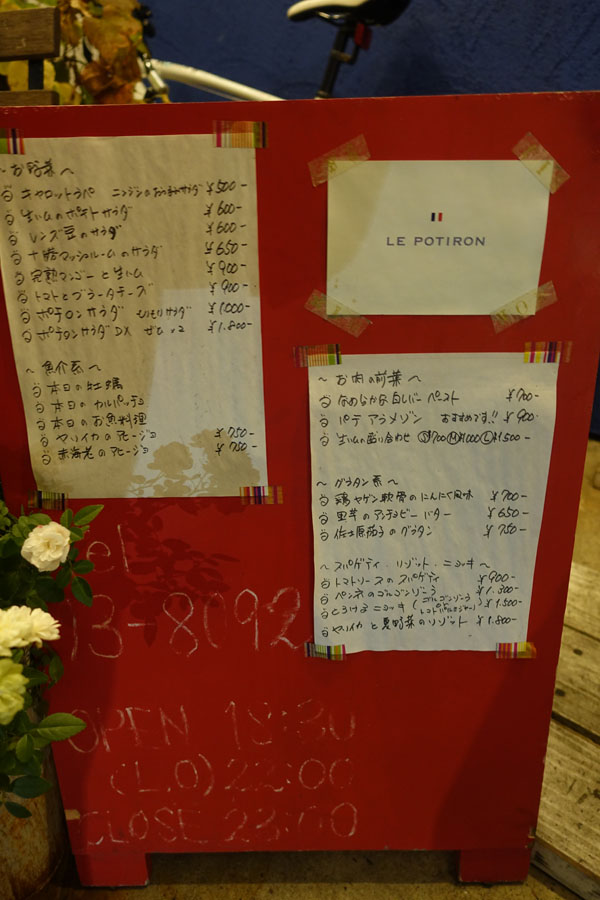 〜お野菜へ
キャロットラペ ニンジンのおつまみサラダ ¥500-
生ハムのポテトサラダ ¥600-
レンズ豆のサラダ ¥600-
十勝マッシュルームのサラダ ¥650-
完熟マンゴーと生ハム ¥900-
トマトとブラータチーズ ¥900-
ポティロンサラダ もりもりサラダ ¥1000-
ポティロンサラダDX ¥1.800-
〜魚介系へ
本日の牡蠣
本日のカルパッチョ
本日のお魚料理
ヤリイカのアヒージョ ¥750-
赤海老のアヒージョ ¥750-
LE POTIRON
〜お肉の前菜へ
なめらかな白レバーペースト ¥700-
パテアラメゾン おすすめです!! ¥900-
生ハムの盛り合わせ Ⓢ¥700 Ⓜ¥1000 Ⓛ¥1500-
〜グラタン系〜
鶏ヤゲン軟骨のにんにく風味 ¥700-
里芋のアンチョビーバター ¥650-
佐土原茄子のグラタン ¥750-
〜スパゲティ・リゾット・ニョッキ〜
トマトソースのスパゲティ ¥900-
ペンネのゴルゴンゾーラ ¥1.300-
とろけるニョッキ (ゴルゴンゾーラ ¥1.500-
ヤリイカと夏野菜のリゾット ¥1.800-
TEL
13-8092
OPEN 18:30
(L.O) 22:00
CLOSE 23:00